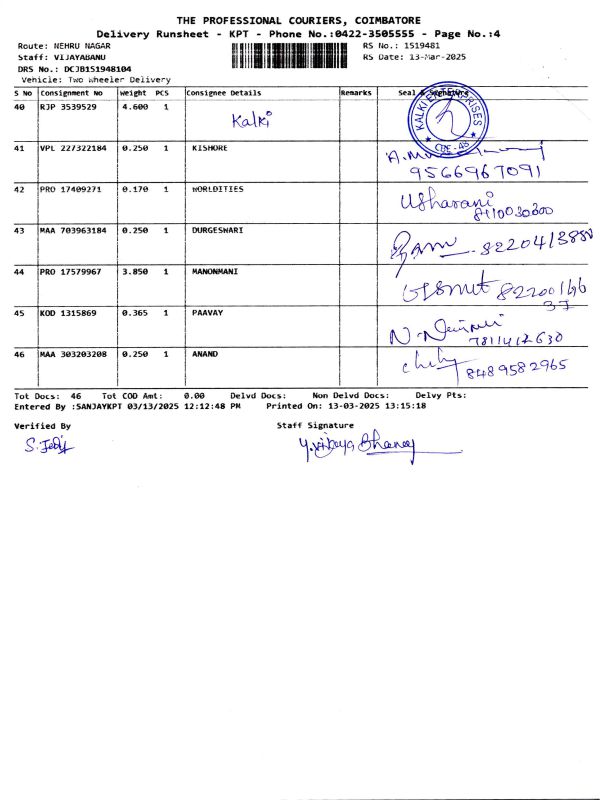 THE PROFESSIONAL COURIERS, COIMBATORE
Delivery Runsheet - KPT - Phone No.:0422-3505555 - Page No.:4
Route: NEHRU NAGAR
RS No.: 1519481
Staff: VIJAYABANU
RS Date: 13-Mar-2025
DRS No.: DCJB151948104
Vehicle: Two Wheeler Delivery
S No Consignment No Weight PCS Consignee Details Remarks Seal & Signature
40 RJP 3539529 4.600 1 Kalki
KALKI ENTERPRISES
CBE-45
41 VPL 227322184 0.250 1 KISHORE
9566967091
42 PRO 17409271 0.170 1 WORLDITIES
Usharani
43 MAA 703963184 0.250 1 DURGESWARI
44 PRO 17579967 3.850 1 MANONMANI
45 KOD 1315869 0.365 1 PAAVAY
7811412630
46 MAA 303203208 0.250 1 ANAND
8489582965
Tot Docs: 46 Tot COD Amt: 0.00 Delvd Docs: Non Delvd Docs: Delvy Pts:
Entered By :SANJAYKPT 03/13/2025 12:12:48 PM Printed On: 13-03-2025 13:15:18
Verified By Staff Signature